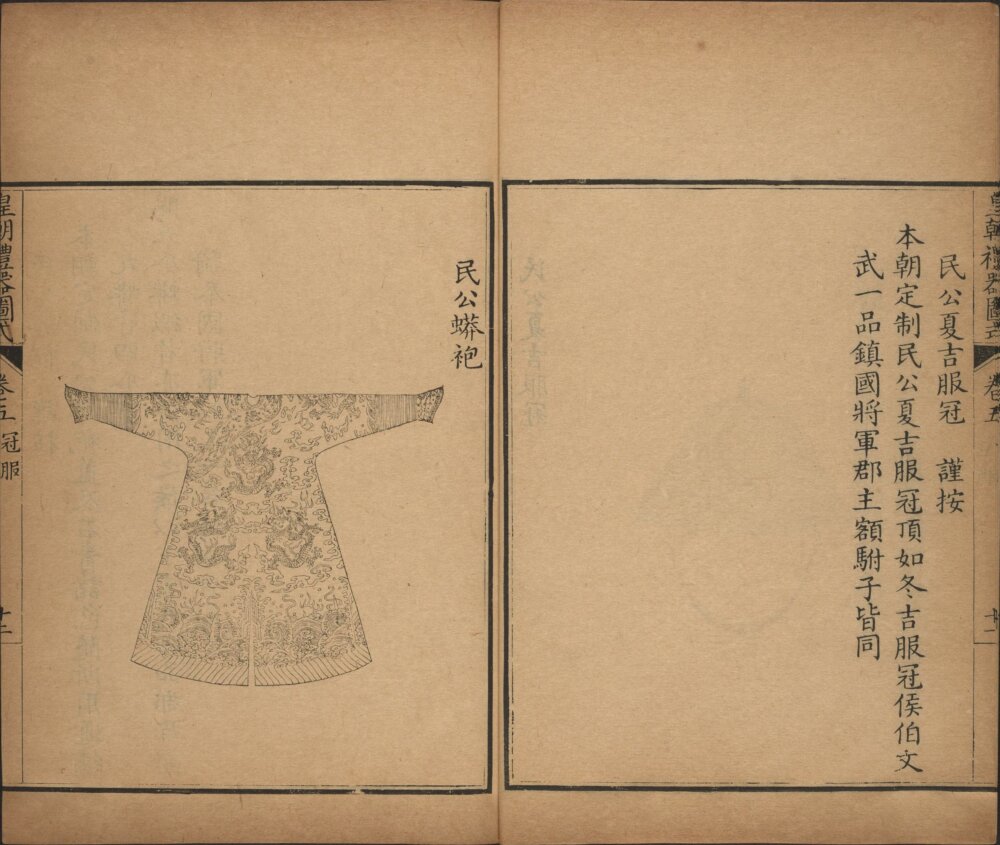 皇朝禮器圖式 卷五
十一
民公夏吉服冠 謹按
本朝定制民公夏吉服冠頂如冬吉服冠侯伯文
武一品鎮國將軍郡主額駙子皆同
民公蟒袍
皇朝禮器圖式 卷五 冠服
十二